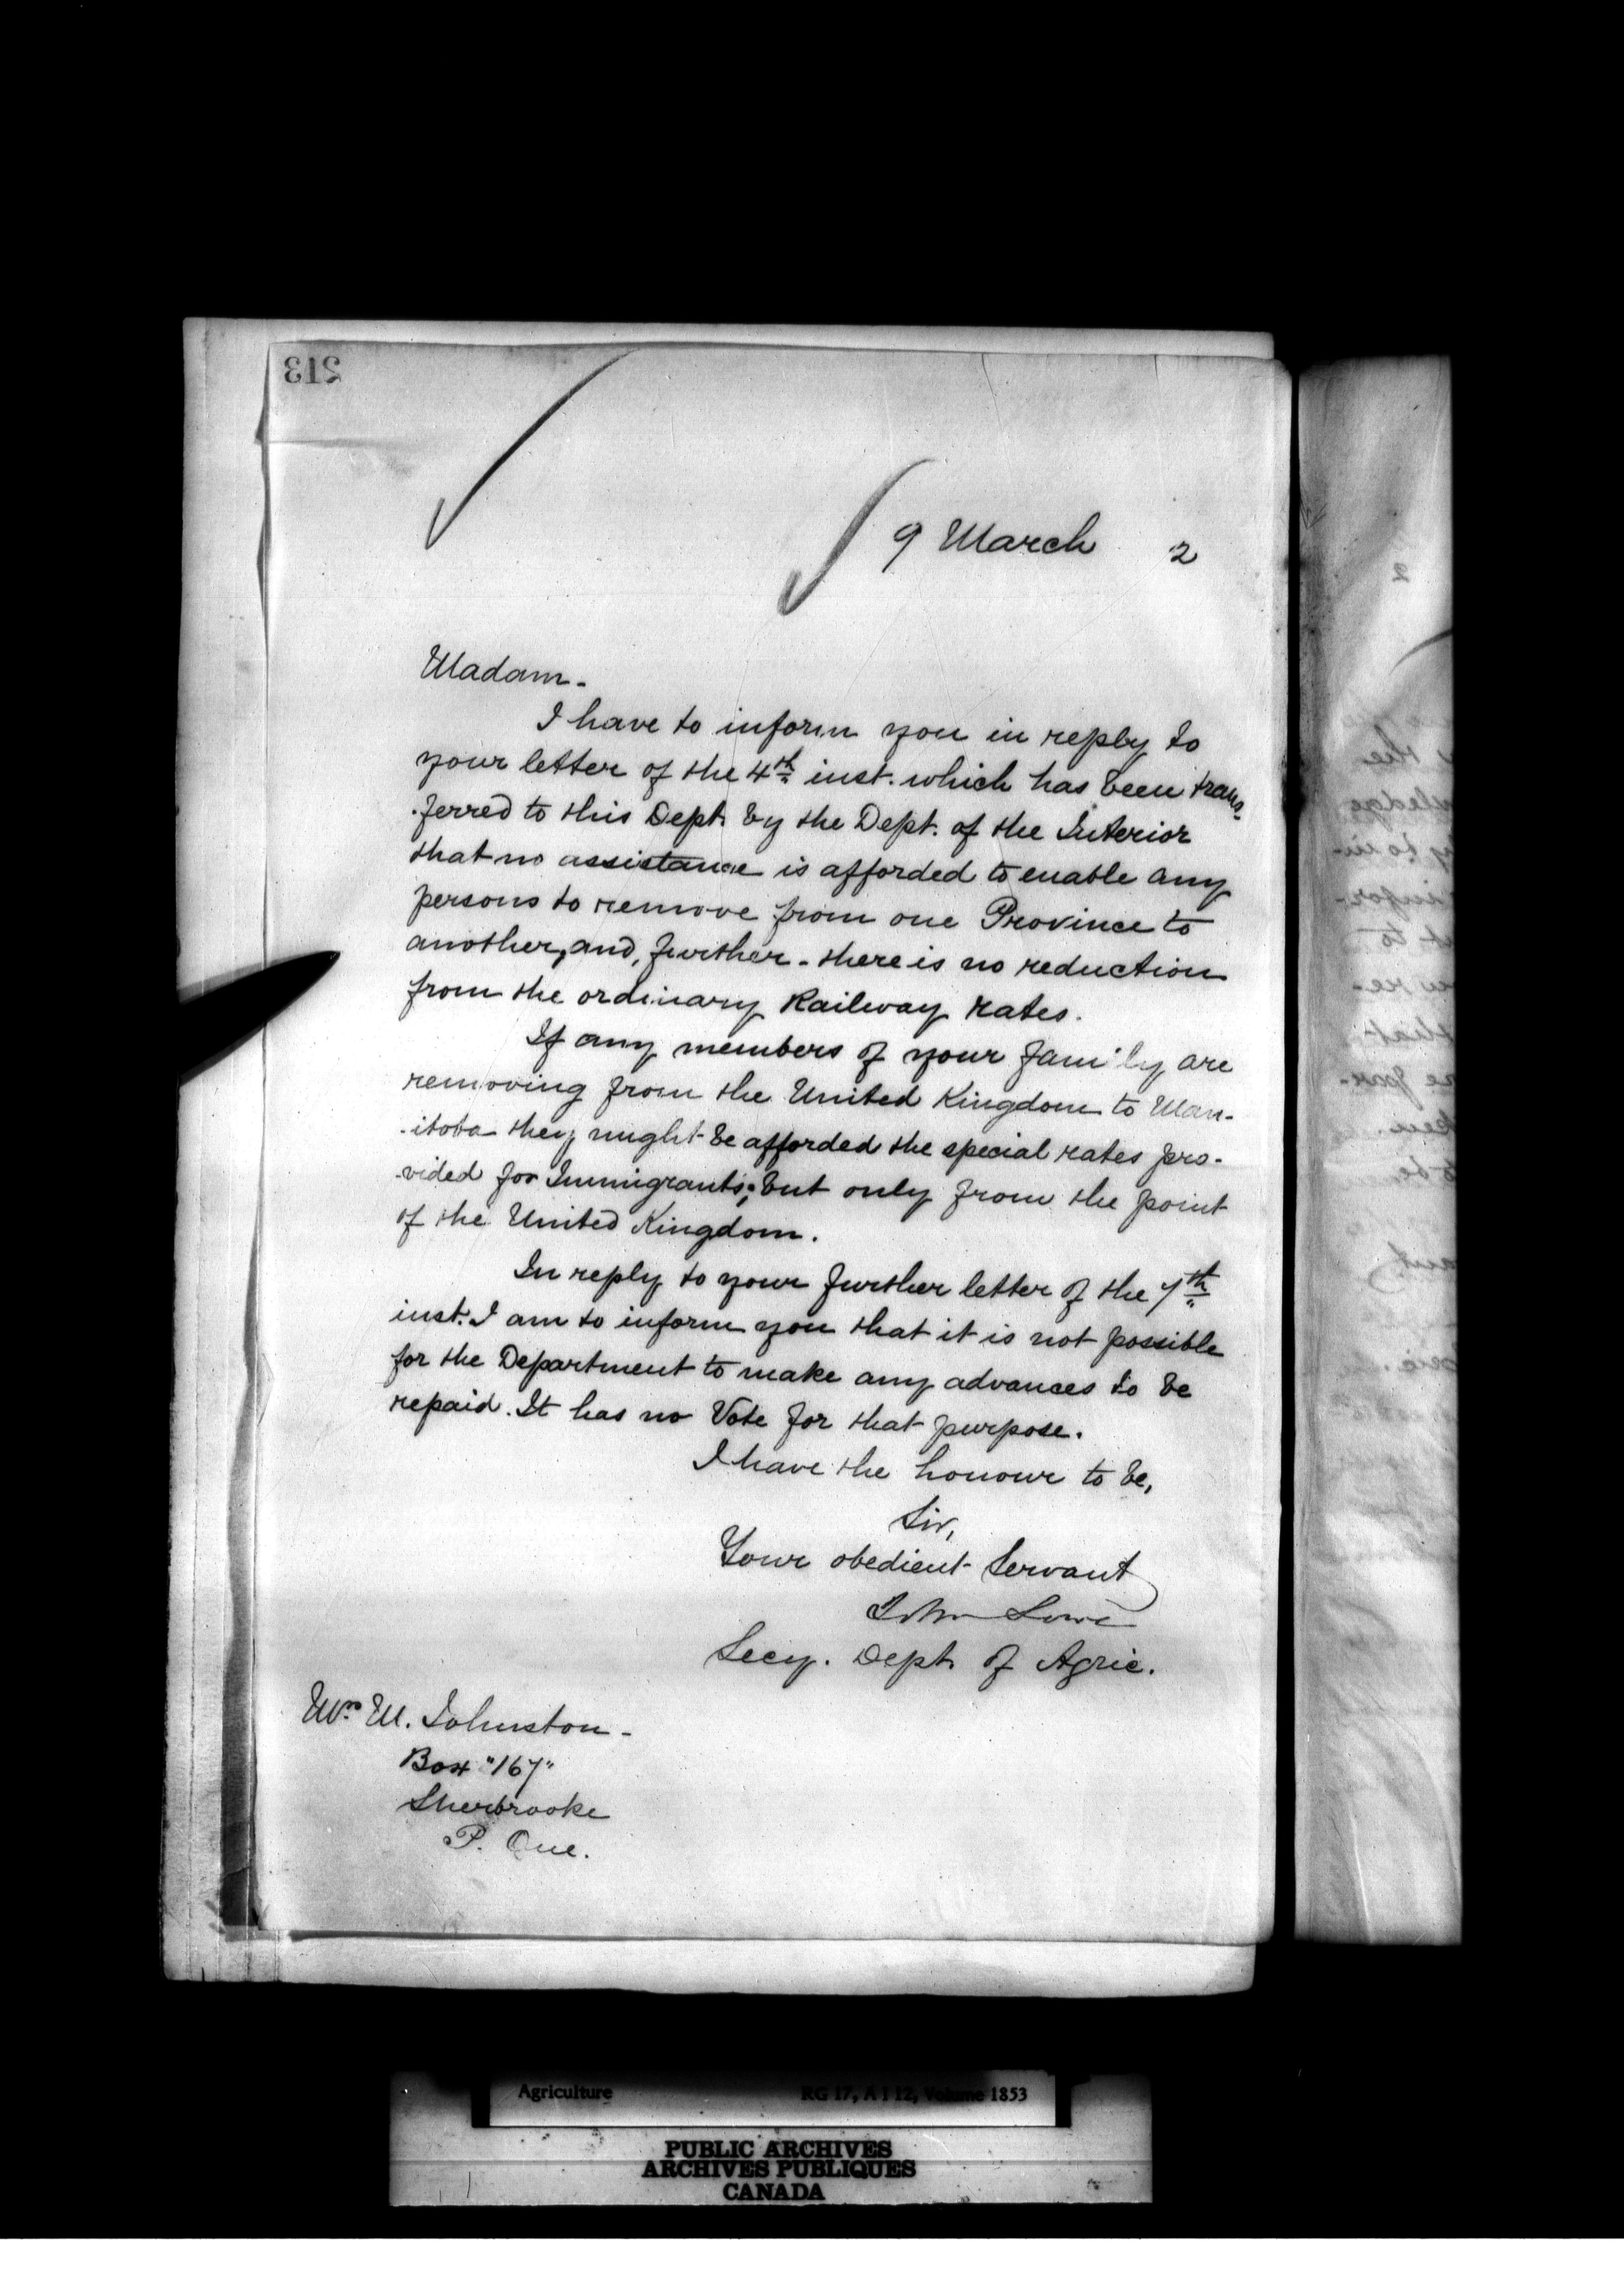 213
9 March 2
Madam -
I have to inform you in reply to
your letter of the 4th inst. which has been trans-
-ferred to this Dept. by the Dept. of the Interior
that no assistance is afforded to enable any
persons to remove from one Province to
another, and, further - there is no reduction
from the ordinary Railway rates.
If any members of your family are
removing from the United Kingdom to Man-
-itoba they might be afforded the special rates pro-
-vided for Immigrants; but only from the point
of the United Kingdom.
In reply to your further letter of the 7th
inst. I am to inform you that it is not possible
for the Department to make any advances to be
repaid. It has no Vote for that purpose.
I have the honour to be,
Sir,
Your obedient Servant
John Lowe
Secy. Dept. of Agric.
M. Johnston -
Box "167"
Sherbrooke
P. Que.
Agriculture RG 17, A I 12, Volume 1853
PUBLIC ARCHIVES
ARCHIVES PUBLIQUES
CANADA